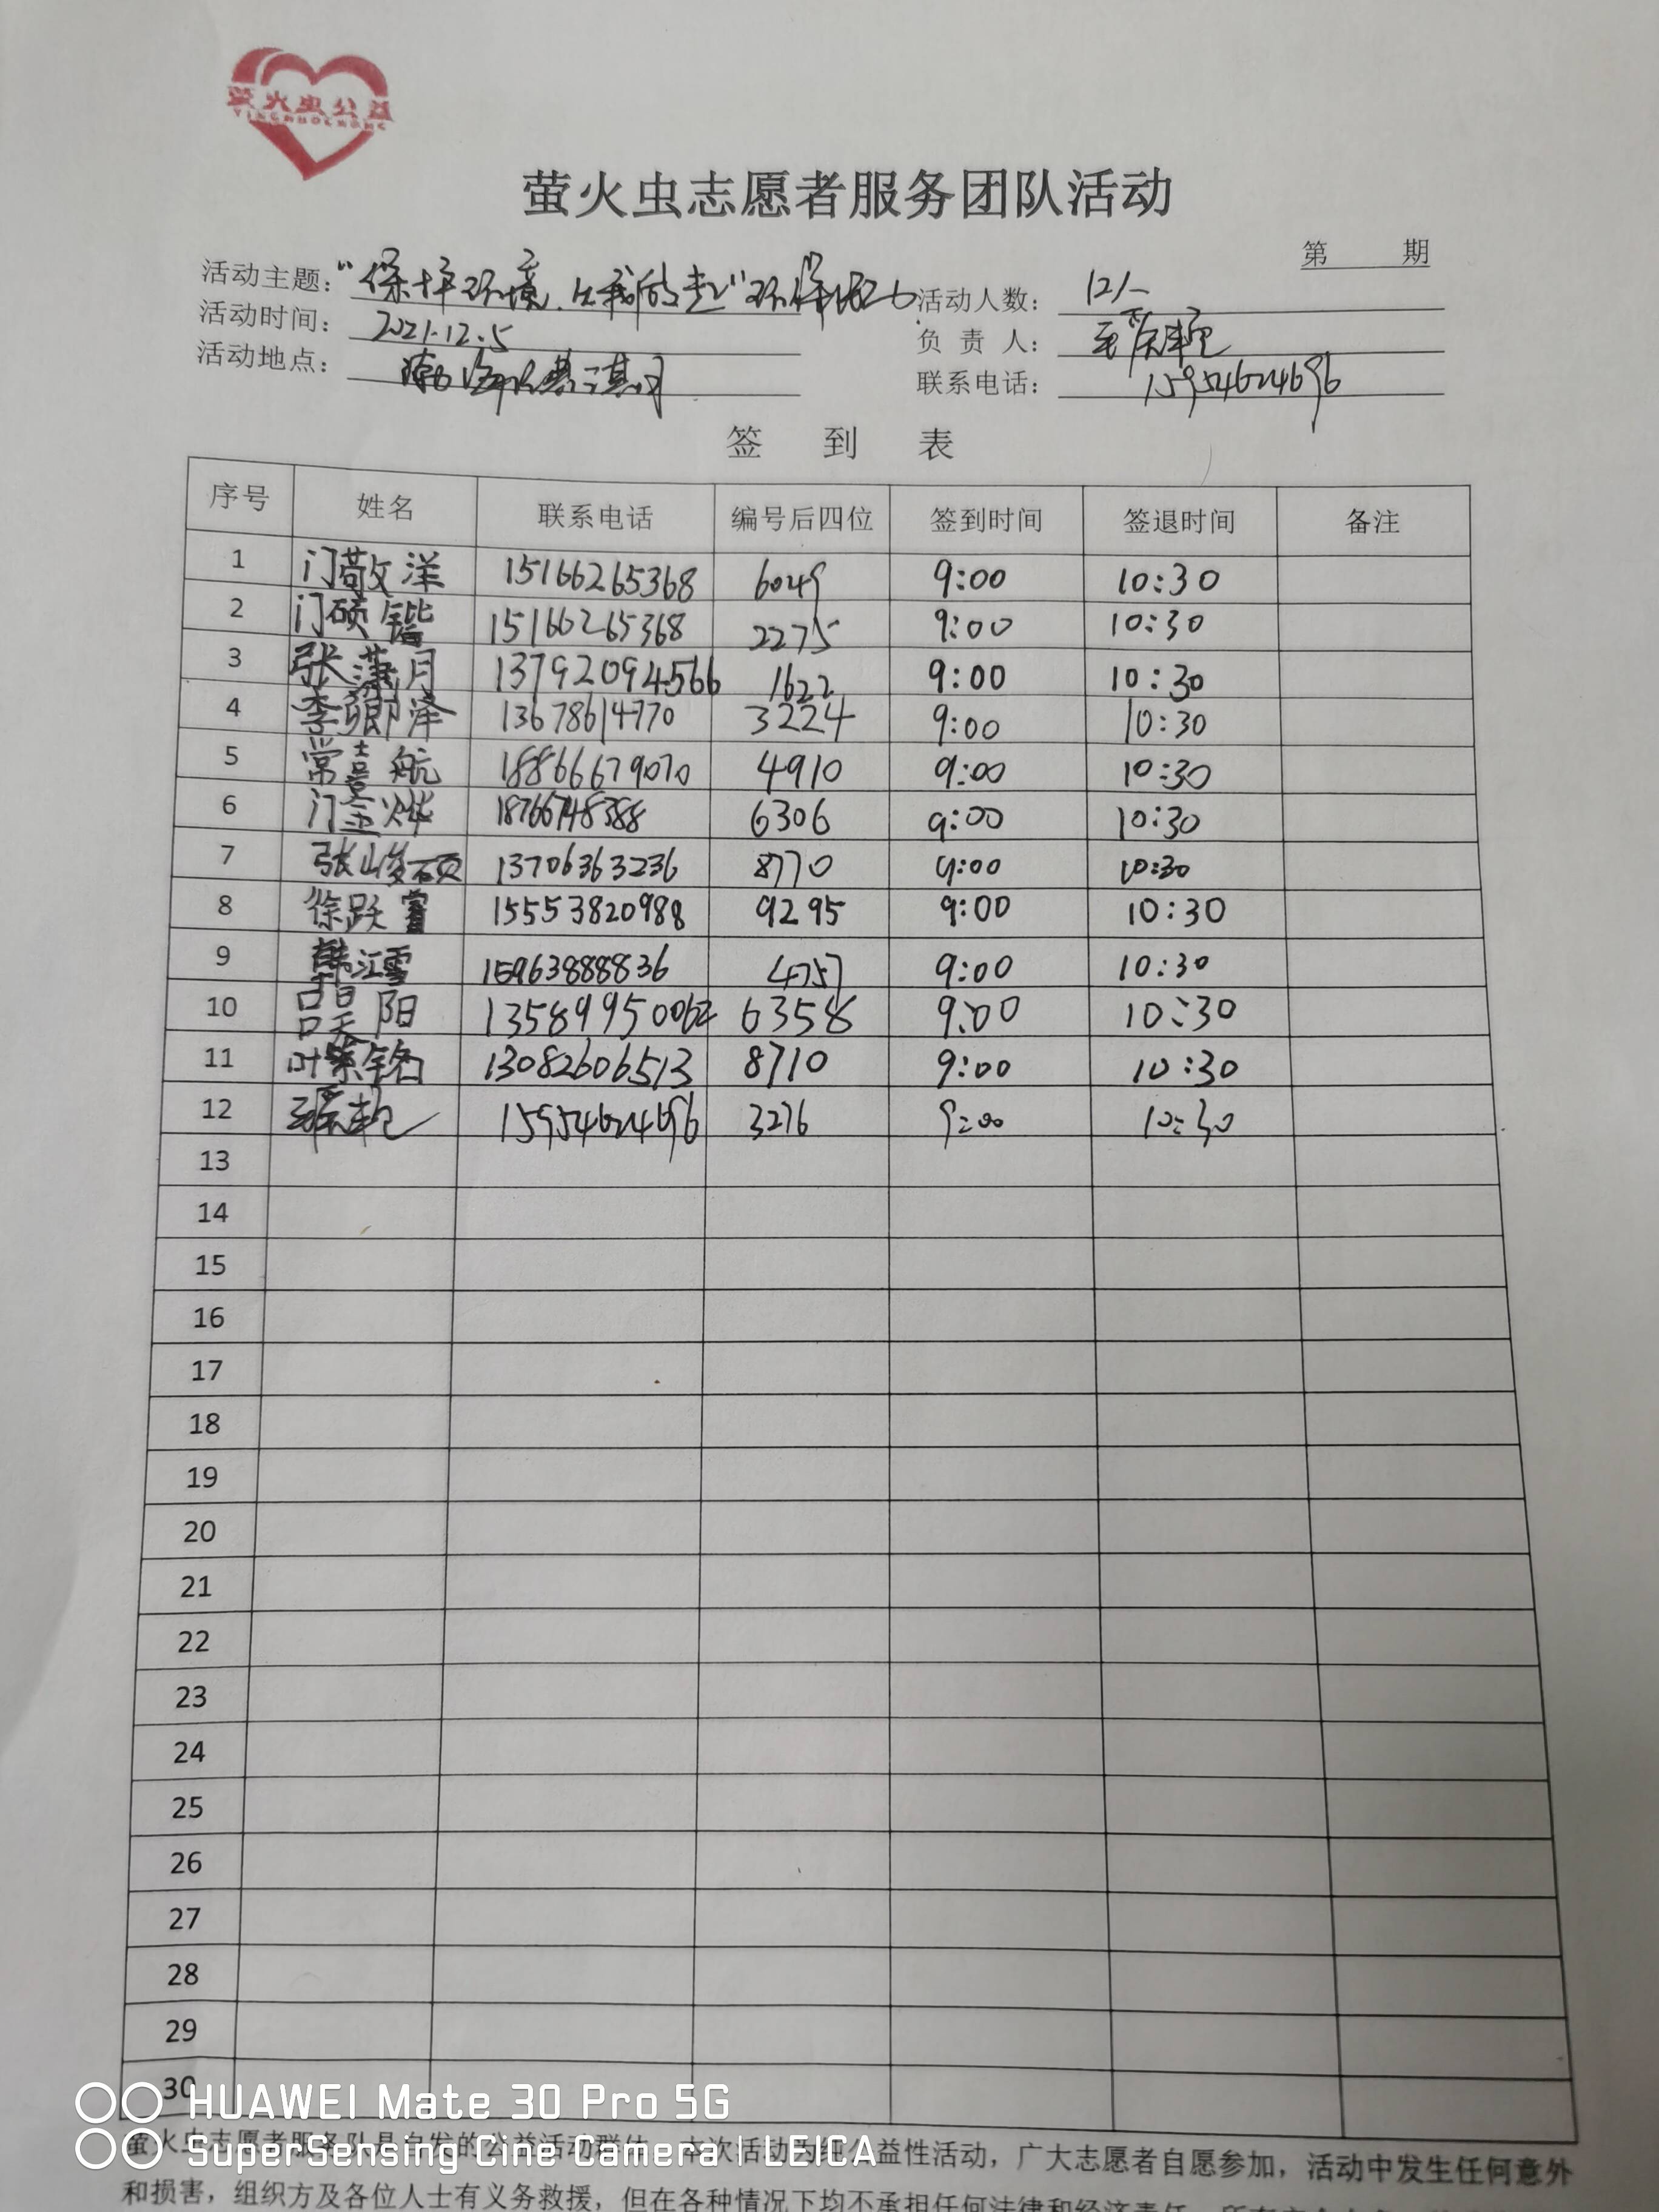 萤火虫公益
萤火虫志愿者服务团队活动
第 期
活动主题：“保护环境，从我做起”环保活动 活动人数：12人
活动时间：2021.12.5 负责人：
活动地点： 联系电话：15954624696
签 到 表
序号 姓名 联系电话 编号后四位 签到时间 签退时间 备注
1 门敬洋 15166265368 6049 9:00 10:30
2 门硕锴 15166265368 2275 9:00 10:30
3 张潇月 13792094566 1622 9:00 10:30
4 李卿泽 13678614770 3224 9:00 10:30
5 常喜航 18866679070 4910 9:00 10:30
6 门金烨 18766748388 6306 9:00 10:30
7 张峻硕 13706363236 8770 9:00 10:30
8 徐跃 15553820988 9295 9:00 10:30
9 韩江雪 15963888836 4757 9:00 10:30
10 阳 6358 9:00 10:30
11 叶紫铭 13082606513 8710 9:00 10:30
12 15954624696 3276 9:00 10:30
13
14
15
16
17
18
19
20
21
22
23
24
25
26
27
28
29
30
HUAWEI Mate 30 Pro 5G
SuperSensing Cine Camera | LEICA
萤火虫志愿者服务队是自发的公益活动群体，本次活动为纯公益性活动，广大志愿者自愿参加，活动中发生任何意外
和损害，组织方及各位人士有义务救援，但在各种情况下均不承担任何法律和经济责任